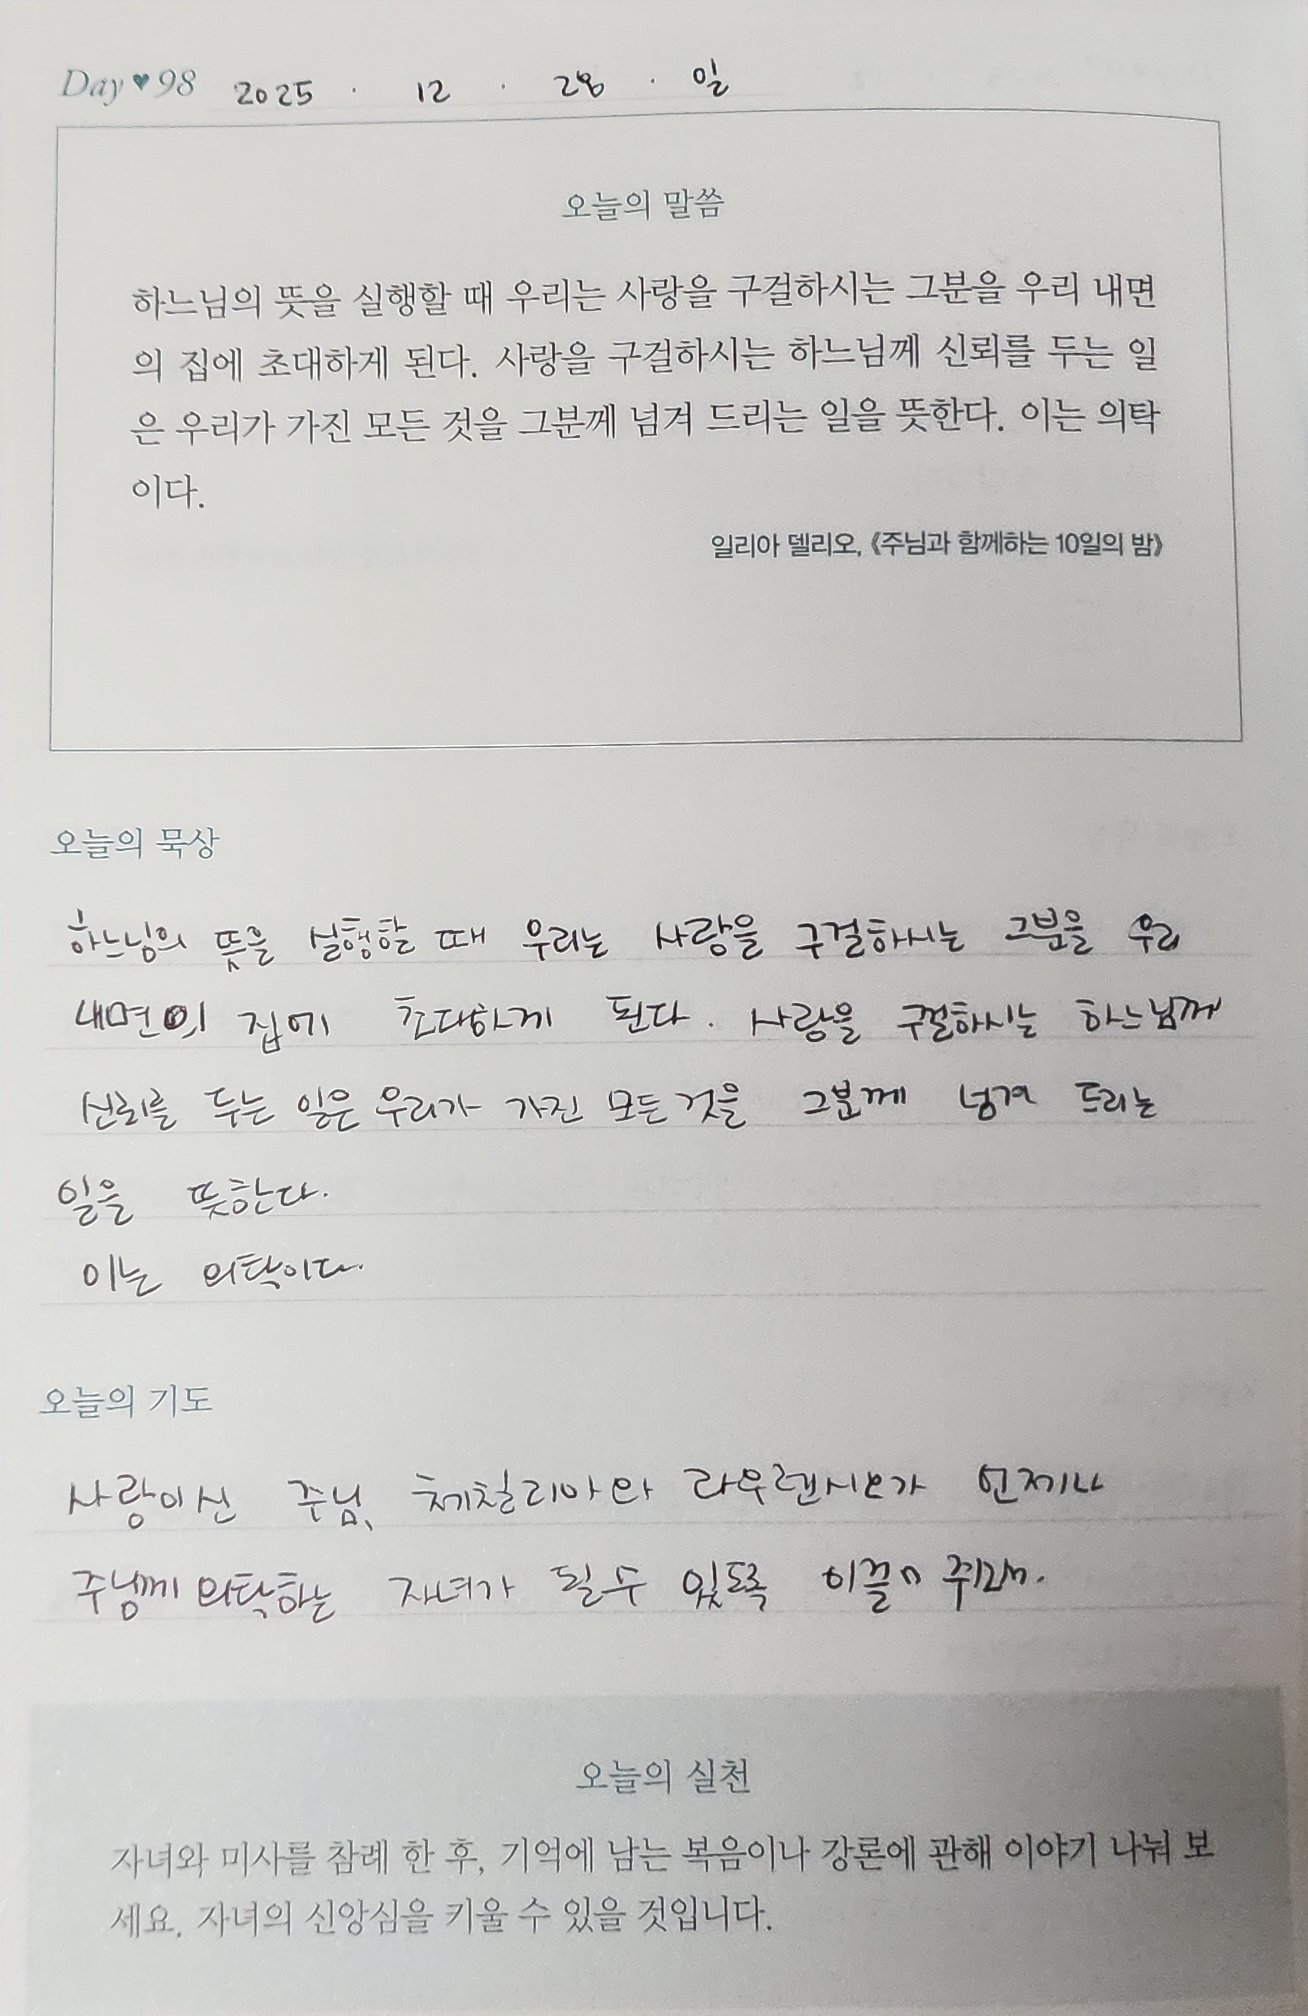 Day ♥ 98 2025 . 12 . 28 . 일
오늘의 말씀
하느님의 뜻을 실행할 때 우리는 사랑을 구걸하시는 그분을 우리 내면
의 집에 초대하게 된다. 사랑을 구걸하시는 하느님께 신뢰를 두는 일
은 우리가 가진 모든 것을 그분께 넘겨 드리는 일을 뜻한다. 이는 의탁
이다.
일리아 델리오, 《주님과 함께하는 10일의 밤》
오늘의 묵상
하느님의 뜻을 실행할 때 우리는 사랑을 구걸하시는 그분을 우리
내면의 집에 초대하게 된다. 사랑을 구걸하시는 하느님께
신뢰를 두는 일은 우리가 가진 모든 것을 그분께 넘겨 드리는
일을 뜻한다.
이는 의탁이다.
오늘의 기도
사랑이신 주님, 체칠리아와 라우렌시오가 언제나
주님께 의탁하는 자녀가 될 수 있도록 이끌어
오늘의 실천
자녀와 미사를 참례 한 후, 기억에 남는 복음이나 강론에 관해 이야기 나눠 보
세요. 자녀의 신앙심을 키울 수 있을 것입니다.